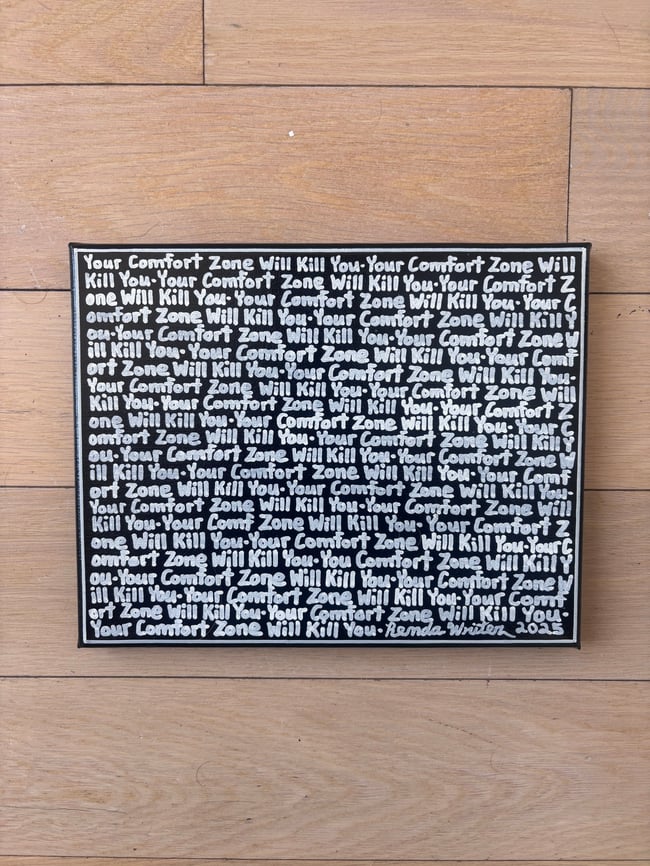 Your Comfort Zone Will Kill You-Your Comfort Zone Will
Kill You-Your Comfort Zone Will Kill You-Your Comfort Z
one Will Kill You-Your Comfort Zone Will Kill You-Your C
omfort Zone Will Kill You-Your Comfort Zone Will Kill Y
ou-Your Comfort Zone Will Kill You-Your Comfort Zone W
ill Kill You-Your Comfort Zone Will Kill You-Your Comf
ort Zone Will Kill You-Your Comfort Zone Will Kill You-
Your Comfort Zone Will Kill You-Your Comfort Zone Will
Kill You-Your Comfort Zone Will Kill You-Your Comfort Z
one Will Kill You-Your Comfort Zone Will Kill You-Your C
omfort Zone Will Kill You-Your Comfort Zone Will Kill Y
ou-Your Comfort Zone Will Kill You-Your Comfort Zone W
ill Kill You-Your Comfort Zone Will Kill You-Your Comf
ort Zone Will Kill You-Your Comfort Zone Will Kill You-
Your Comfort Zone Will Kill You-Your Comfort Zone Will
Kill You-Your Comf Zone Will Kill You-Your Comfort Z
one Will Kill You-Your Comfort Zone Will Kill You-Your C
omfort Zone Will Kill You-You Comfort Zone Will Kill Y
ou-Your Comfort Zone Will Kill You-Your Comfort Zone W
ill Kill You-Your Comfort Zone Will Kill You-Your Comf
ort Zone Will Kill You-Your Comfort Zone Will Kill You-
Your Comfort Zone Will Kill You-Renda Writer 2025